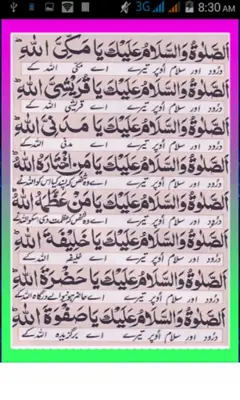 3G 8:30 AM
اَلصَّلٰوةُ وَالسَّلَامُ عَلَيْكَ يَا مَكِّيَّ اللهِ ط
درود اور سلام اوپر تیرے اے مکی اللہ کے
اَلصَّلٰوةُ وَالسَّلَامُ عَلَيْكَ يَا قُرَيْشِيَّ اللهِ ط
درود اور سلام اوپر تیرے اے قریشی اللہ کے
اَلصَّلٰوةُ وَالسَّلَامُ عَلَيْكَ يَا مَدَنِيَّ اللهِ ط
درود اور سلام اوپر تیرے اے مدنی اللہ کے
اَلصَّلٰوةُ وَالسَّلَامُ عَلَيْكَ يَا مَنِ اخْتَارَهُ اللهُ ط
درود اور سلام اوپر تیرے اے وہ شخص کہ پسند کیا اس کو اللہ نے
اَلصَّلٰوةُ وَالسَّلَامُ عَلَيْكَ يَا مَنْ عَظَّمَهُ اللهُ ط
درود اور سلام اوپر تیرے اے وہ شخص کہ عظمت دی اللہ نے
اَلصَّلٰوةُ وَالسَّلَامُ عَلَيْكَ يَا خَلِيْفَةَ اللهِ ط
درود اور سلام اوپر تیرے اے خلیفہ اللہ کے
اَلصَّلٰوةُ وَالسَّلَامُ عَلَيْكَ يَا حَضْرَةَ اللهِ ط
درود اور سلام اوپر تیرے اے حاضر ہونیوالے درگاہ اللہ کے
اَلصَّلٰوةُ وَالسَّلَامُ عَلَيْكَ يَا صَفْوَةَ اللهِ ط
درود اور سلام اوپر تیرے اے برگزیدہ اللہ کے